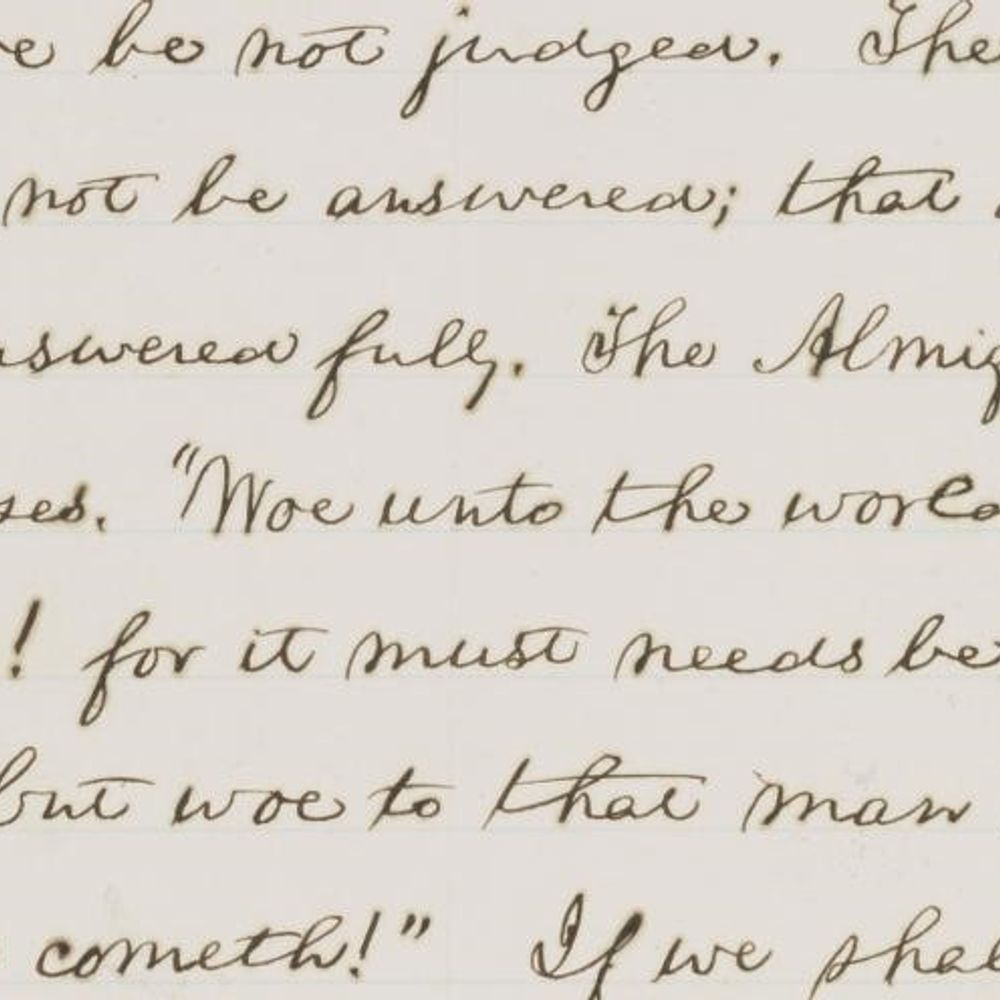 e be not judged. The
not be answered; that
swered fully. The Almig
ses. "Woe unto the world
! for it must needs be
but woe to that man
cometh!" If we shal